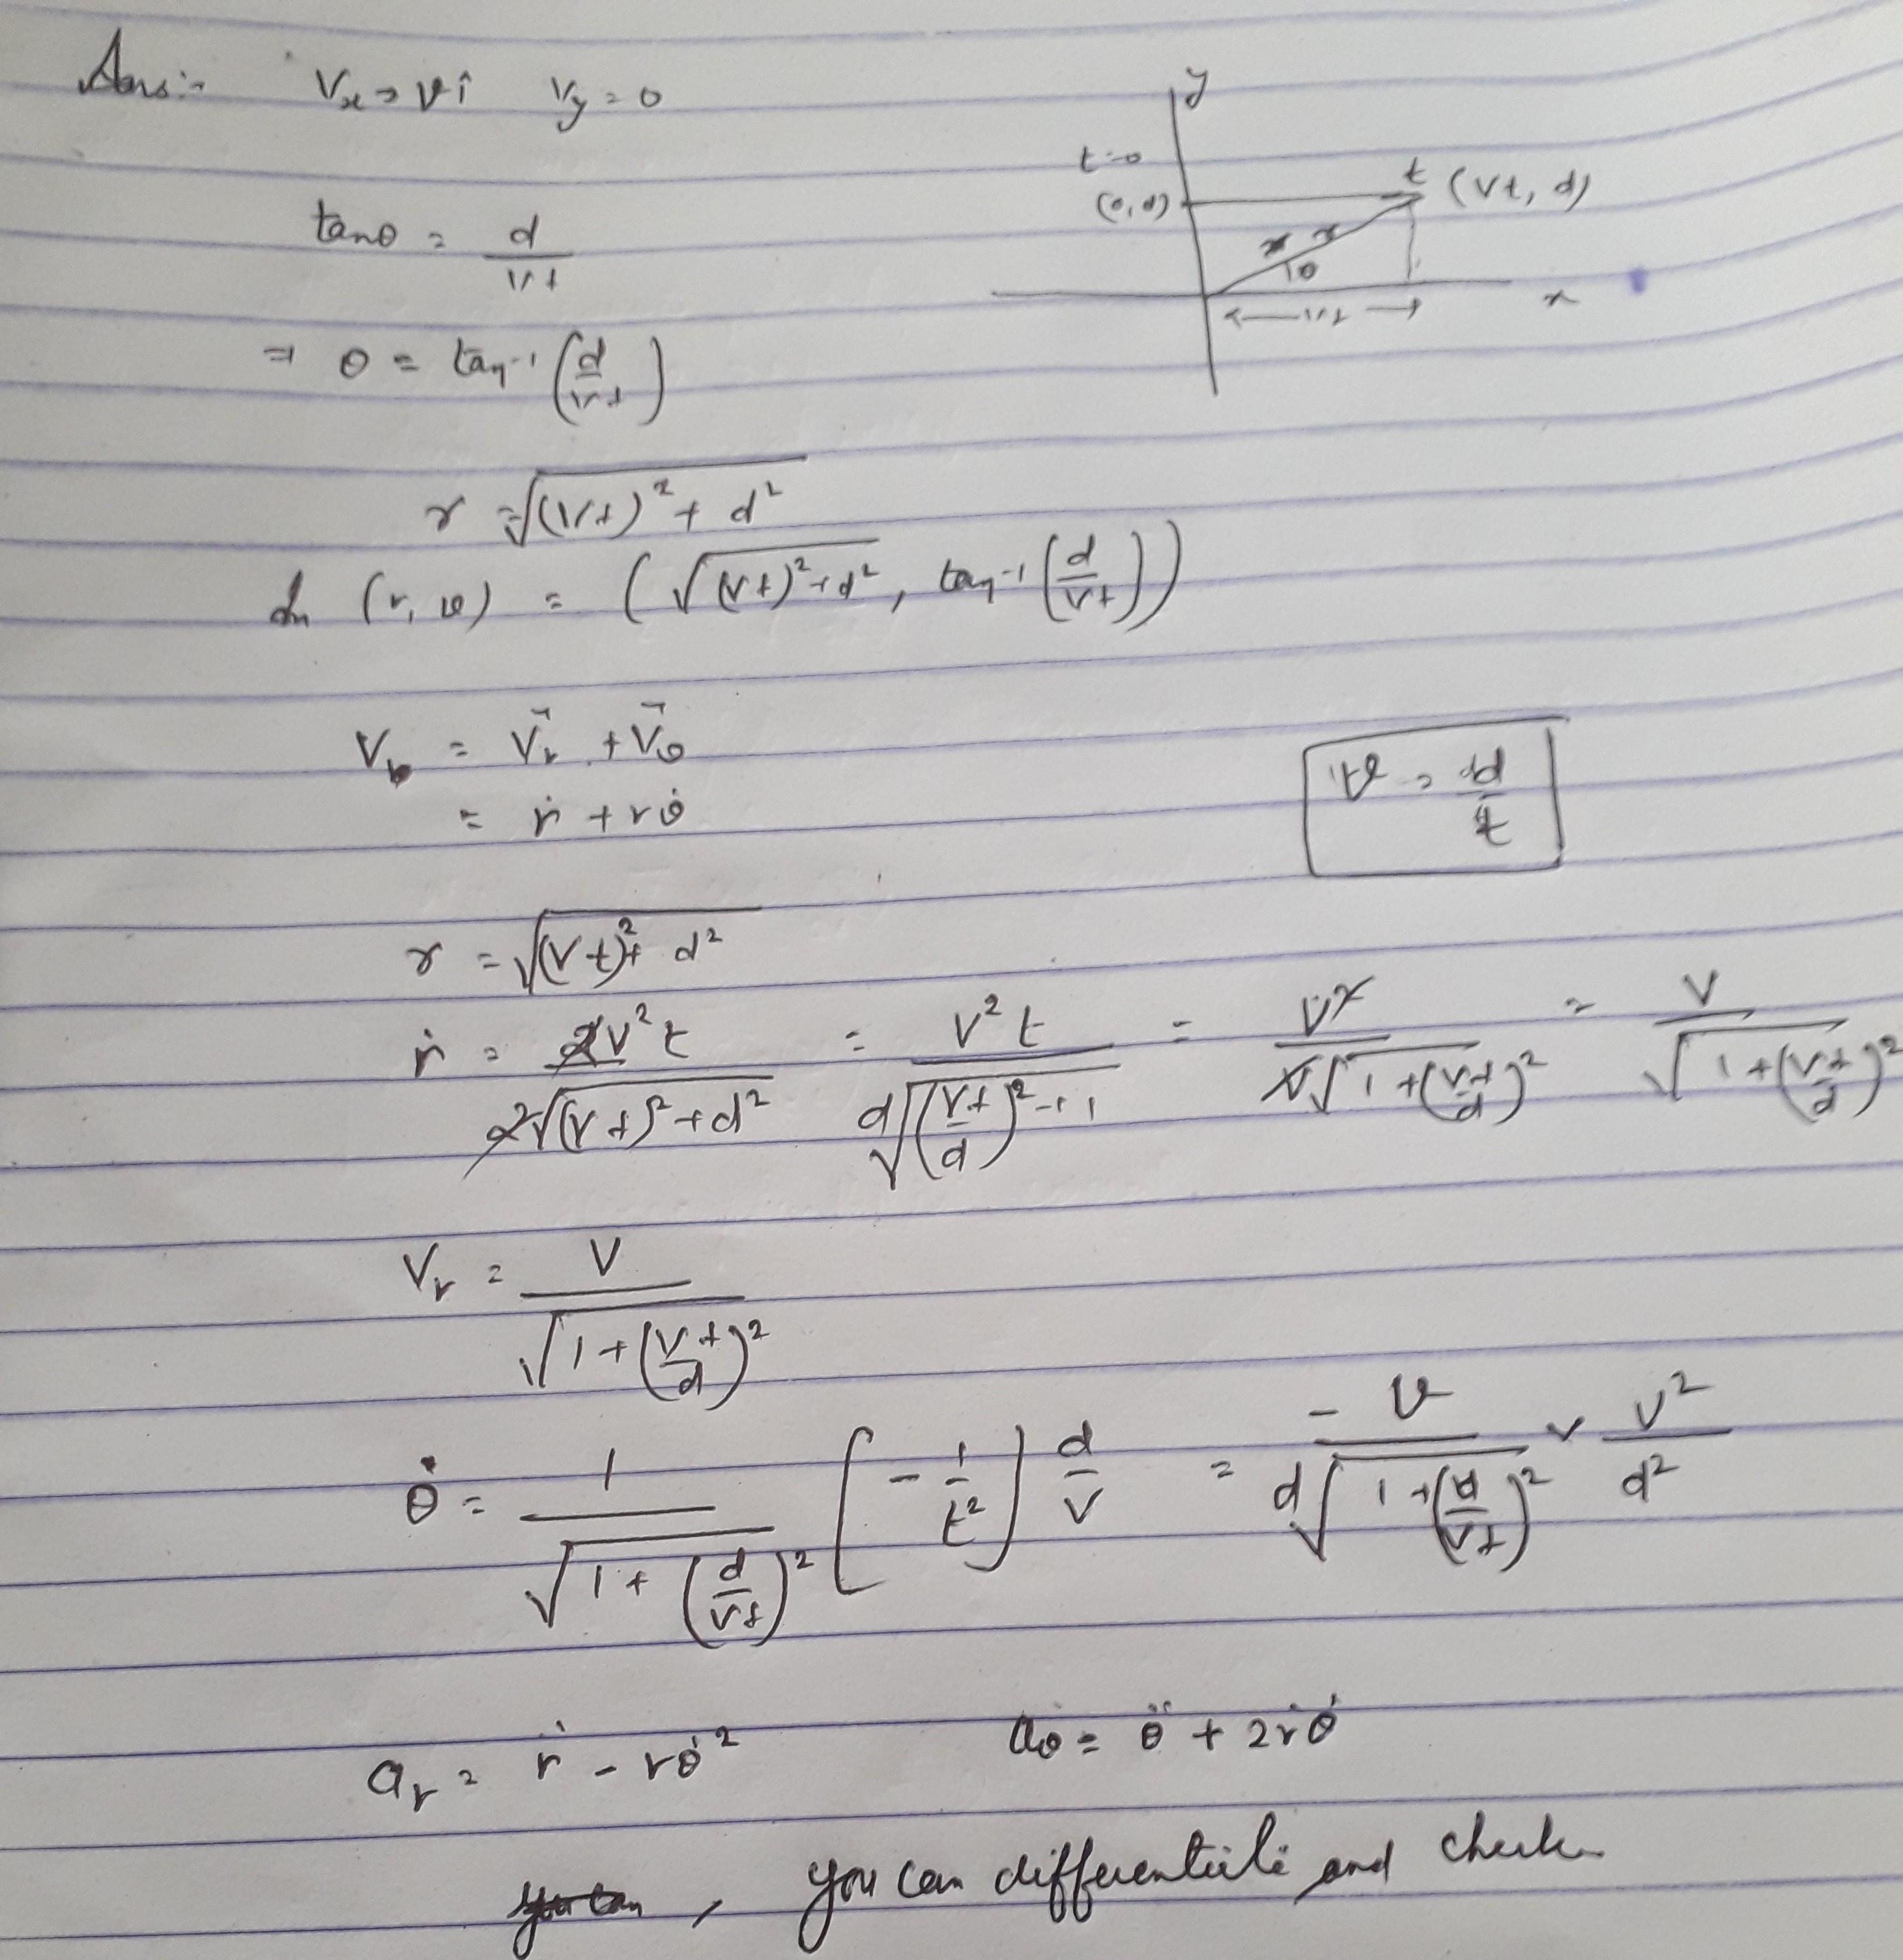 Ans:- Vx → vî Vy = 0
y
t=0
(0,d)
t (vt, d)
r
θ
vt
x
tanθ = d/vt
⇒ θ = tan⁻¹(d/vt)
r = √((vt)² + d²)
In (r, θ) = (√((vt)²+d²), tan⁻¹(d/vt))
V = V⃗r + V⃗θ
= ṙ + rθ̇
v = d/t
r = √((vt)² + d²)
ṙ = 2v²t / 2√((vt)²+d²) = v²t / d√((vt/d)²+1) = v / √(1+(vt/d)²) = v / √(1+(vt/d)²)
Vr = v / √(1+(vt/d)²)
θ̇ = 1 / √(1+(d/vt)²) [-1/t²] d/v = -v / d√(1+(d/vt)²) × v²/d²
ar = r̈ - rθ̇² aθ = θ̈ + 2ṙθ̇
, you can differentiate and check